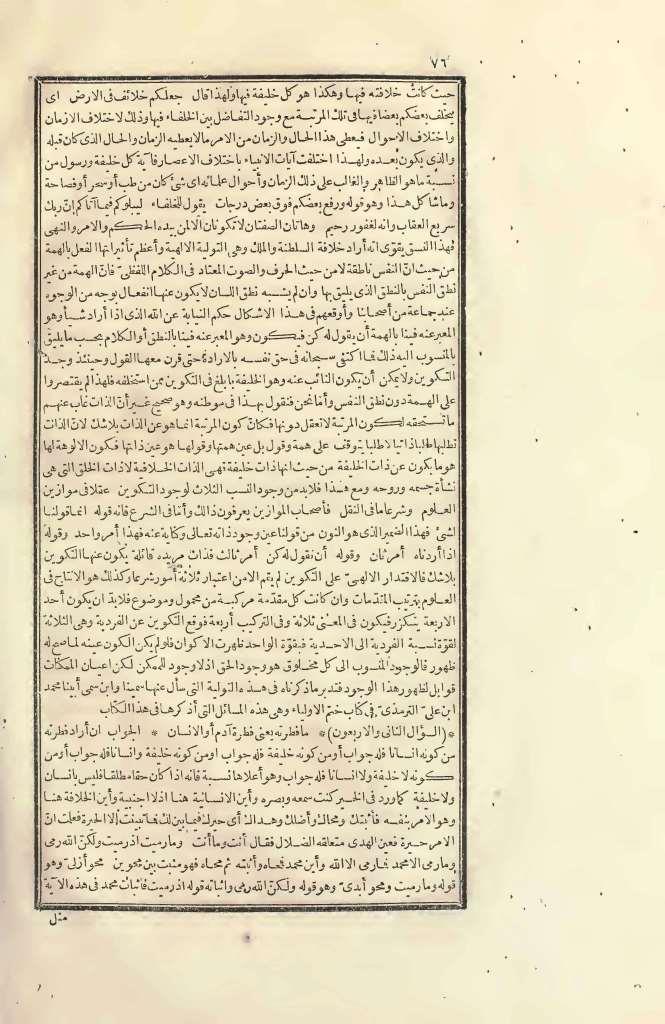 ٧٦
حيث كانت خلافته فيها وهكذا هو كل خليفة فيها ولهذا قال جعلكم خلائف فى الارض اى
يخلف بعضكم بعضا فيها فى تلك المرتبة مع وجود التفاضل بين الخلفاء فيها وذلك لاختلاف الازمان
واختلاف الاحوال فيعطى هذا الحال والزمان من الامر مالا يعطيه الزمان والحال الذى كان قبله
والذى يكون بعده ولهذا اختلفت آيات الانبياء باختلاف الاعصار فآية كل خليفة ورسول من
نسبة ما هو الظاهر والغالب على ذلك الزمان وأحوال علمائه اى شئ كان من طب أو سحر أو فصاحة
وما شاكل هذا وهو قوله ورفع بعضكم فوق بعض درجات يقول للخلفاء ليبلوكم فيما آتاكم إنّ ربك
سريع العقاب وانه لغفور رحيم وهاتان الصفتان لا تكونان الا لمن بيده الحكم والامر والنهى
فهذا النسق يقوّى انه أراد خلافة السلطنة والملك وهى التولية الالهية وأعظم تأثيراتها الفعل بالهمة
من حيث انّ النفس ناطقة لا من حيث الحرف والصوت المعتاد فى الكلام اللفظىّ فانّ الهمة من غير
نطق النفس بالنطق الذى يليق بها وان لم يشبه نطق اللسان لا يكون عنها انفعال بوجه من الوجوه
عند جماعة من أصحابنا وأوقعهم فى هذا الاشكال حكم النيابة عن الله الذى اذا أراد شيأ وهو
المعبر عنه فينا بالهمة أن يقول له كن فيكون وهو المعبر عنه فينا بالنطق أو الكلام بحسب ما يليق
بالمنسوب اليه ذلك فما اكتفى سبحانه فى حق نفسه بالارادة حتى قرن معها القول وحينئذ وجد
التكوين ولا يمكن أن يكون النائب عنه وهو الخليفة بابلغ فى التكوين ممن استخلفه فلهذا لم يقتصروا
على الهمة دون نطق النفس وأما نحن فنقول بهذا فى موطنه وهو صحيح غير أنّ الذات غاب عنهم
ما تستحقه لكون المرتبة لا تعقل دونها فكان كون المرتبة انما هو عن الذات بلا شك لانّ الذات
تطلبها طلبا ذاتيا لا طلبا يتوقف على همة وقول بل عين همتها وقولها هو عين ذاتها فكون الالوهة لها
هو ما يكون عن ذات الخليفة من حيث انها ذات خليفة فهى الذات الخلافية لا ذات الخلق التى هى
نشأة جسمه وروحه ومع هذا فلابد من وجود النسب الثلاث لوجود التكوين عقلا فى موازين
العلوم وشرعا فى النقل فأصحاب الموازين يعرفون ذلك وأمّا فى الشرع فانه قوله انما قولنا
لشئ فهذا الضمير الذى هو النون من قولنا عين وجود ذاته تعالى وكناية عنه فهذا أمر واحد وقوله
اذا أردناه أمر ثان وقوله أن نقول له كن أمر ثالث فذات مريده قائلة يكون عنها التكوين
بلا شك فالاقتدار الالهىّ على التكوين لم يتم الا من اعتبار ثلاثة أمور شرعا وكذلك هو الانتاج فى
العلوم بترتيب المقدّمات وان كانت كل مقدّمة مركبة من محمول وموضوع فلابدّ ان يكون أحد
الاربعة يتكرّر فيكون فى المعنى ثلاثة وفى التركيب أربعة فوقع التكوين عن الفردية وهى الثلاثة
لقوّة نسبة الفردية الى الاحدية فبقوّة الواحد ظهرت الاكوان فلو لم يكن الكون عينه لما صح له
ظهور فالوجود المنسوب الى كل مخلوق هو وجود الحق اذ لا وجود للممكن لكن اعيان الممكنات
قوابل لظهور هذا الوجود فتدبر ما ذكرناه فى هذه التولية التى سأل عنها سمينا وابن سمى أبينا محمد
ابن علىّ الترمذىّ فى كتاب ختم الاولياء وهى هذه المسائل التى أذكرها فى هذا الكتاب
*(السؤال الثانى والاربعون)* ما فطرته يعنى فطرة آدم أو الانسان * الجواب ان أراد فطرته
من كونه انسانا فله جواب أو من كونه خليفة فله جواب او من كونه خليفة وانسانا فله جواب أو من
كونه لا خليفة ولا انسانا فله جواب وهو أعلاها نسبة فانه اذا كان حقا مطلقا فليس بانسان
ولا خليفة كما ورد فى الخبر كنت سمعه وبصره وأين الانسانية هنا اذ لا اجنبية وأين الخلافة هنا
وهو الامر بنفسه فأثبتك ومحاك وأضلك وهداك أى حيرك فيما بين لك فما تبينت إلا الحيرة فعلمت انّ
الامر حيرة فعين الهدى متعلقه الضلال فقال أنت وما أنت وما رميت اذ رميت ولكنّ الله رمى
وما رمى الا محمد فما رمى الا الله وأين محمد فمحاه وأثبته ثم محاه فهو مثبت بين محوين محو أزلىّ وهو
قوله وما رميت ومحو أبدىّ وهو قوله ولكنّ الله رمى واثباته قوله اذ رميت فاثبات محمد فى هذه الآية
مثل